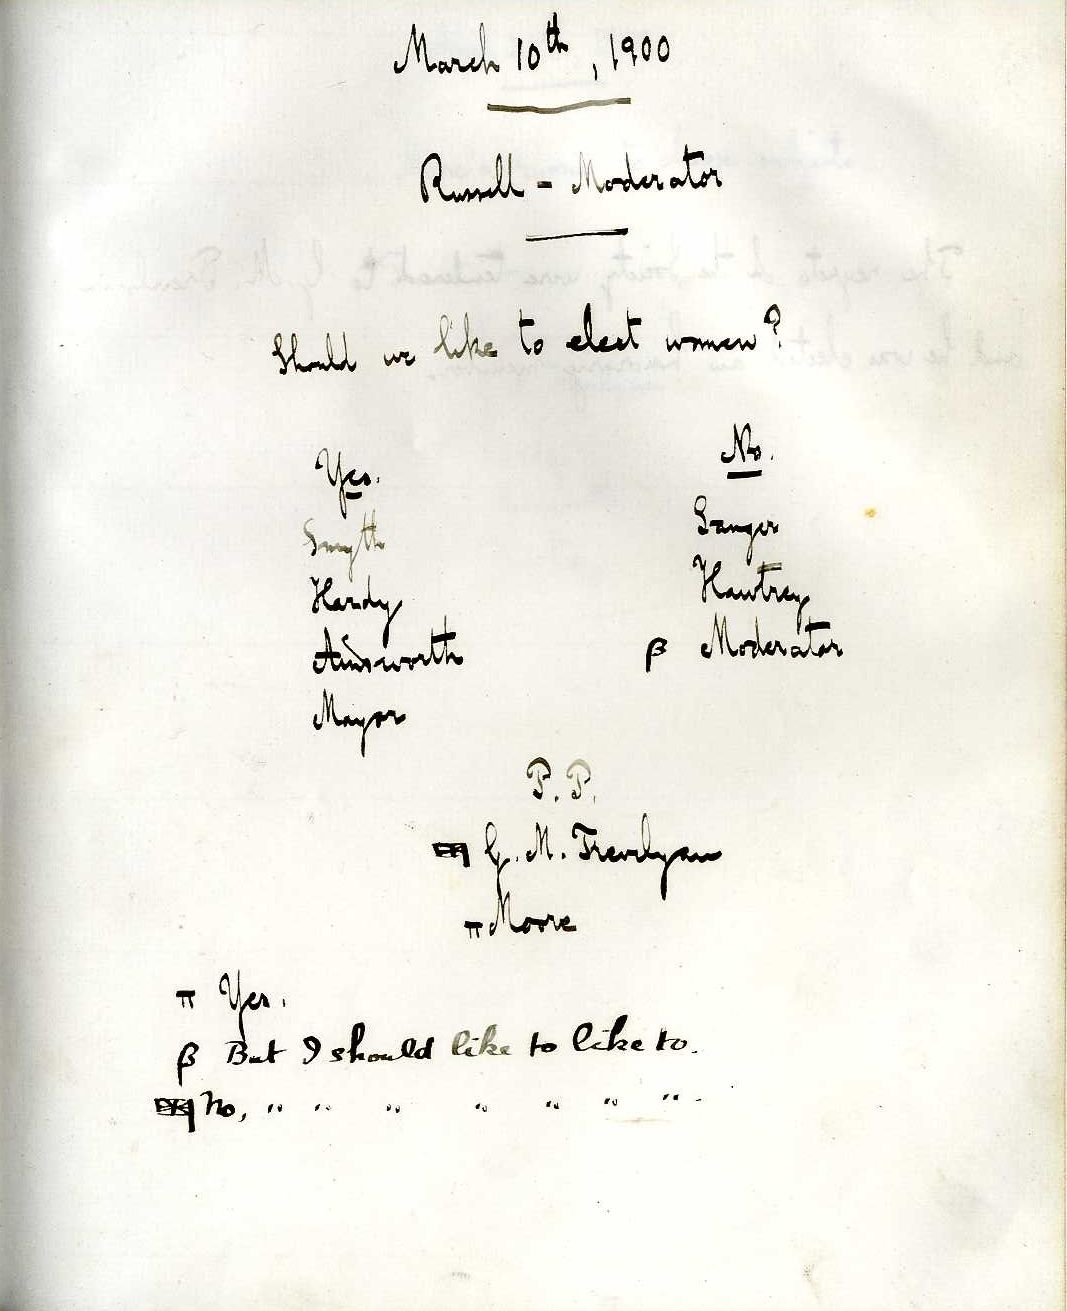 March 10th, 1900
Russell - Moderator
Should we like to elect women?
Yes.
Smyth
Hardy
Ainsworth
Mayor
No.
Sanger
Hawtrey
β Moderator
P. P.
G. M. Trevelyan
π Moore
π Yes.
β But I should like to like to.
No, " " " " " " " .